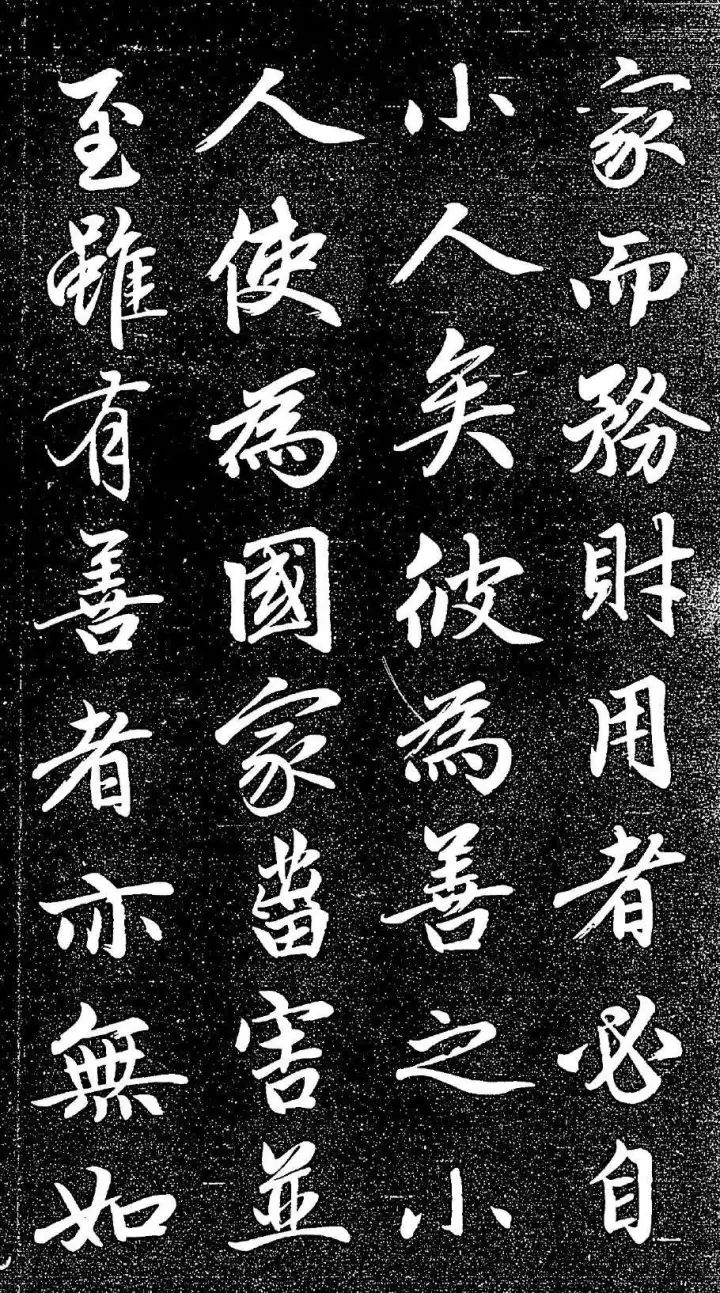 家而務財用者必自
小人矣彼為善之小
人使為國家菑害並
至雖有善者亦無如